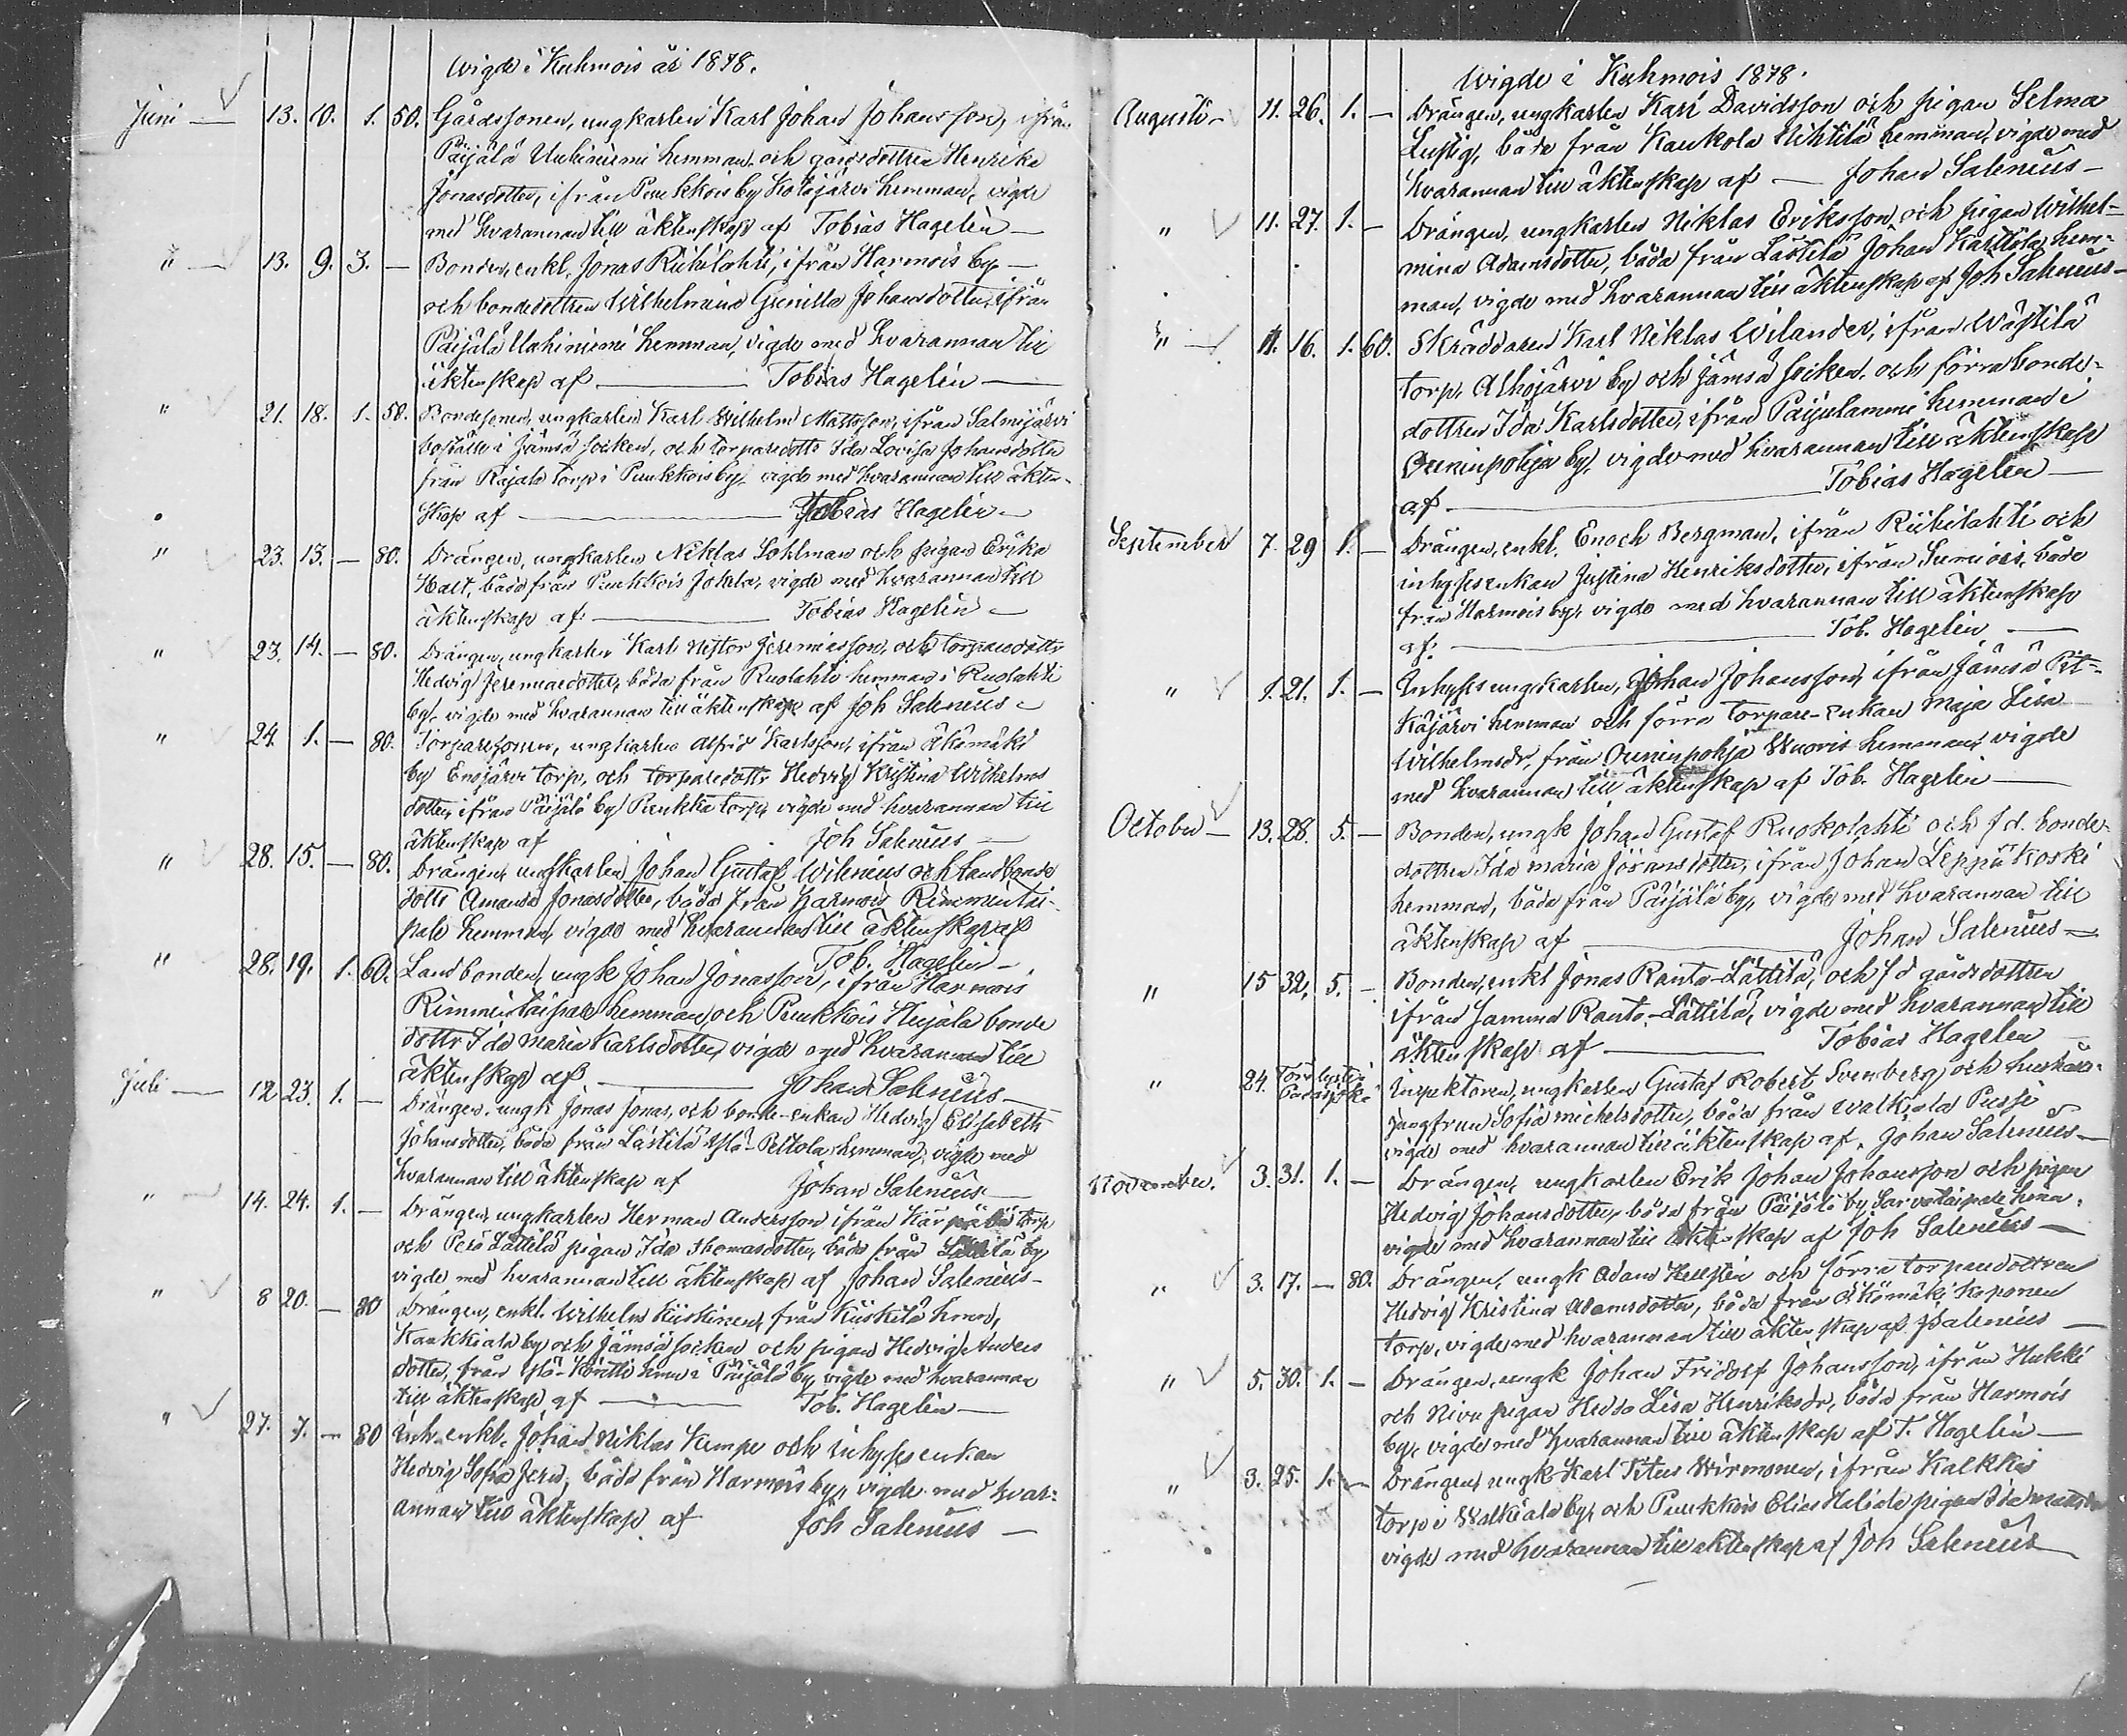 Wigde i Kuhmois år 1878.
Juni — 13. 10. 1. 50. Gårdssonen, ungkarlen Karl Johan Johansson, ifrån
Päijälä Uuhiniemi hemman, och gårdsdottren Henrika
Jonasdotter, ifrån Puukkois by Kotojärvi hemman, vigde
med hvarannan till äktenskap af Tobias Hagelin —
" — 13. 9. 3. — Bonden, enkl. Jonas Riihilahti, ifrån Harmois by —
och bondedottren Wilhelmina Gunilla Johansdotter, ifrån
Päijälä Uuhiniemi hemman, vigde med hvarannan till
äktenskap af — Tobias Hagelin —
" 21. 18. 1. 50. Bondesonen, ungkarlen Karl Wilhelm Mattsson, ifrån Salmijärvi
boställe i Jämsä socken, och torparedottr Ida Lovisa Johansdotter
från Rajala torp i Puukkois by, vigde med hvarannan till äkten-
skap af — Tobias Hagelin —
" 23. 13. — 80. Drängen, ungkarlen Niklas Sohlman och pigan Erika
Halt, båda från Puukkois Jokela, vigde med hvarannan till
äktenskap af: — Tobias Hagelin —
" 23. 14. — 80. Drängen, ungkarlen Karl Nestor Jeremiasson, och torparedottr
Hedvig Jeremiaedotter, båda från Ruolahti hemman i Ruolahti
by, vigde med hvarannan till äktenskap af Joh Salenius —
" 24. 1. — 80. Torparesonen, ungkarlen Alfrid Karlsson, ifrån
by Enojärvi torp, och torparedottr Hedvig Kristina Wilhelms
dotter, ifrån Päijälä by Puukka torp, vigde med hvarannan till
äktenskap af Joh Salenius —
" 28. 15. — 80. Drängen, ungkarlen Johan Gustaf Wilenius och landbonde
dottr Amanda Jonasdotter, båda från Harmois Rimmintai-
pale hemman, vigde med hvarannan till äktenskap af
Tob. Hagelin —
" 28. 19. 1. 60. Landbonden, ungk Johan Jonasson, ifrån Harmois
Rimmintaipale hemman, och Puukkois Heijala bonde
dottr Ida Maria Karlsdotter, vigde med hvarannan till
äktenskap af — Johan Salenius —
Juli — 12 23. 1. — Drängen, ungk Jonas Jonas, och bonde-enkan Hedvig Elisabeth
Johansdotter, båda från Lästilä Yla-Peltola hemman, vigde med
hvarannan till äktenskap af Johan Salenius —
" 14. 24. 1. — Drängen, ungkarlen Herman Andersson ifrån torp
och Perä Lättilä pigan Ida Thomasdotter, båda från by
vigde med hvarannan till äktenskap af Johan Salenius —
" 8 20. — 80 Drängen, enkl. Wilhelm Kiiskinen, från Kiiskilä hmn,
Kaukkiala by och Jämsä socken och pigan Hedvig Anders
dotter, från Ylä-Könttö hmn i Päijälä by, vigde med hvarannan
till äktenskap af — Tob. Hagelin —
" 27. 7. — 80 Inh. enkl. Johan Niklas Kempe och inhyses enkan
Hedvig Sofia Jerem, båda från Harmois by, vigde med hvar-
annan till äktenskap af Joh Salenius —
Wigde i Kuhmois 1878.
Augusti — 11. 26. 1. — Drängen, ungkarlen Karl Davidsson och pigan Selma
Lustig, båda från Kaukola Nihtilä hemman, vigde med
hvarannan till äktenskap af — Johan Salenius —
" 11. 27. 1. — Drängen, ungkarlen Niklas Eriksson, och pigan Wilhel-
mina Adamsdotter, båda från Lästilä Johan Kartiola hem-
man, vigde med hvarannan till äktenskap af Joh Salenius —
" 11. 16. 1. 60. Skräddaren Karl Niklas Wilander, ifrån Wästilä
torp, Alhojärvi by och Jämsä socken, och förra bonde-
dottren Ida Karlsdotter, ifrån Päijulammi hemman i
Ouninpohja by, vigde med hvarannan till äktenskap
af — Tobias Hagelin —
September 7. 29 1. — Drängen, enkl. Enoch Bergman, ifrån Riihilahti och
inhysesenkan Justina Henriksdotter, ifrån båda
från Harmois by, vigde med hvarannan till äktenskap
af: — Tob. Hagelin —
" 1. 21. 1. — Inhyses ungkarlen, Johan Johansson, ifrån Jämsä Pit-
käjärvi hemman och förra torpare-enkan Maja Lisa
Wilhelmsdr, från Ouninpohja Wuoris hemman, vigde
med hvarannan till äktenskap af Tob. Hagelin —
October — 13. 28. 5. — Bonden, ungk Johan Gustaf Ruokolahti och f.d. bonde-
dottren Ida Maria Göransdotter, ifrån Johan Leppäkoski
hemman, båda från Päijälä by, vigde med hvarannan till
äktenskap af — Johan Salenius —
" 15 32. 5. — Bonden, enkl Jonas Ranta-Lättilä, och f d gårdsdottren
ifrån Jamma Ranta-Lättilä, vigde med hvarannan till
äktenskap af — Tobias Hagelin —
" 24. Inspektoren, ungkarlen Gustaf Robert Svenberg och hushåls-
jungfrun Sofia Michelsdotter, båda från Walkiala Pussi
vigde med hvarannan till äktenskap af. Johan Salenius —
November. 3. 31. 1. — Drängen, ungkarlen Erik Johan Johansson och pigan
Hedvig Johansdotter, båda från Päijälä by Sarvataipale hmn,
vigde med hvarannan till äktenskap af Joh Salenius —
" 3. 17. — 80. Drängen, ungk Adam Hellsten och förra torparedottren
Hedvig Kristina Adamsdotter, båda från Koponen
torp, vigde med hvarannan till äktenskap af JSalenius —
" 5. 30. 1. — Drängen, ungk Johan Fridolf Johansson, ifrån Hukki
och Nivu pigan Hedda Lisa Henriksdr, båda från Harmois
by, vigde med hvarannan till äktenskap af T. Hagelin —
" 3. 25. 1. — Drängen, ungk Karl Titus Wirmonen, ifrån Kalkkis
torp i Walkiala by, och Puukkois Elias Heliola pigan Ida
vigde med hvarannan till äktenskap af Joh Salenius